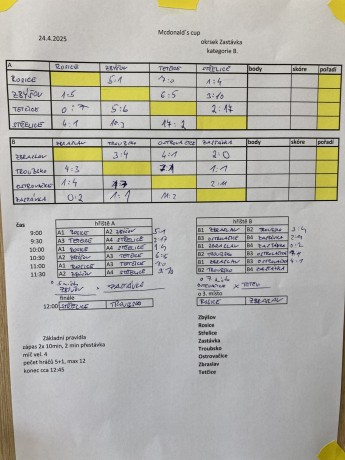 Mcdonald´s cup
24.4.2025
okrsek Zastávka
kategorie B.
A ROSICE ZBÝŠOV TETČICE STŘELICE body skóre pořadí
ROSICE 5:1 7:0 1:4
ZBÝŠOV 1:5 6:5 3:10
TETČICE 0:7 5:6 2:17
STŘELICE 4:1 10:3 17:2
B ZBRASLAV TROUBSKO OSTROVAČICE ZASTÁVKA body skóre pořadí
ZBRASLAV 3:4 4:1 2:0
TROUBSKO 4:3 1:1
OSTROVAČICE 1:4 2:11
ZASTÁVKA 0:2 1:1 11:2
čas hřiště A hřiště B
9:00 A1 ROSICE A2 ZBÝŠOV 5:1 B1 ZBRASLAV B2 TROUBSKO 3:4
9:30 A3 TETČICE A4 STŘELICE 2:17 B3 OSTROVAČICE B4 ZASTÁVKA 2:11
10:00 A1 ROSICE A4 STŘELICE 1:4 B1 ZBRASLAV B4 ZASTÁVKA
10:30 A2 ZBÝŠOV A3 TETČICE 6:5 B2 TROUBSKO B3 OSTROVAČICE
11:00 A1 ROSICE A3 TETČICE B1 ZBRASLAV B3 OSTROVAČICE 4:1
11:30 A2 ZBÝŠOV A4 STŘELICE 3:10 B2 TROUBSKO B4 ZASTÁVKA
ZBÝŠOV x ZASTÁVKA OSTROVAČICE x TETČICE
finále o 3. místo
12:00 STŘELICE TROUBSKO ROSICE ZBRASLAV
Základní pravidla
zápas 2x 10min, 2 min přestávka
míč vel. 4
počet hráčů 5+1, max 12
konec cca 12:45
Zbýšov
Rosice
Střelice
Zastávka
Troubsko
Ostrovačice
Zbraslav
Tetčice